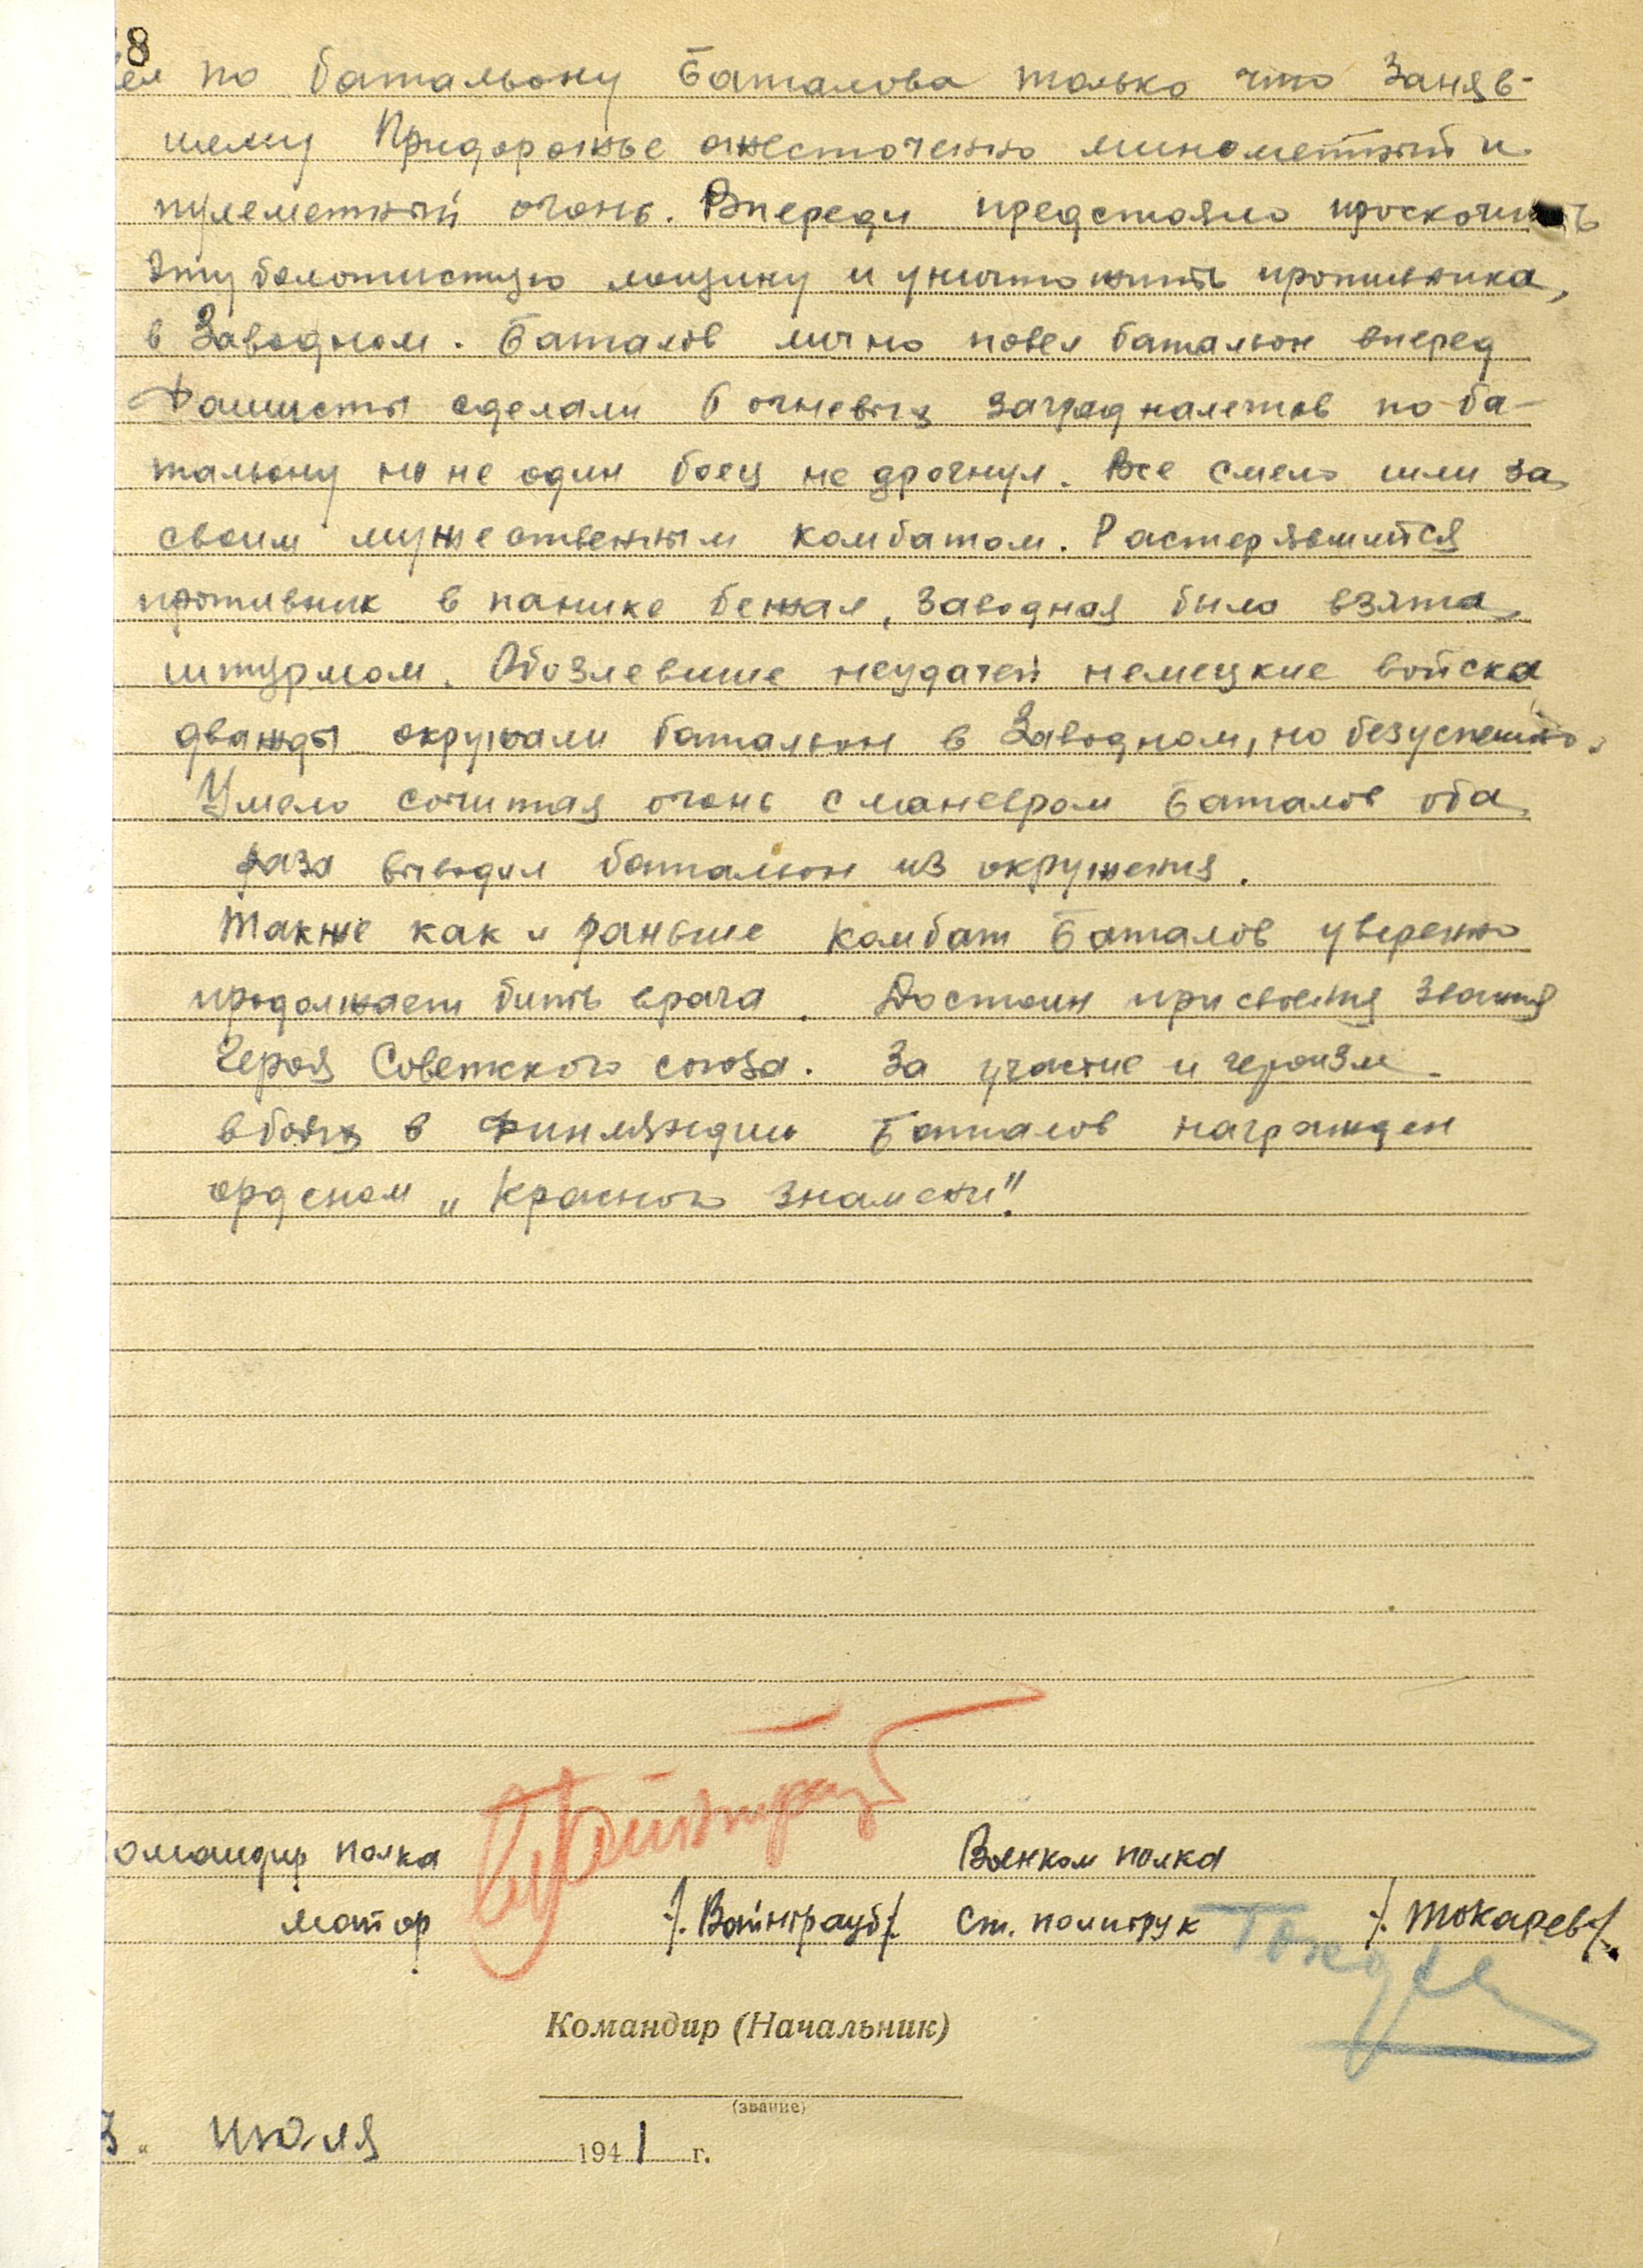 8
ел по батальону Баталова только что заняв-
шему Придорожье ожесточенно минометный и
пулеметный огонь. Впереди предстояло проскочить
эту болотистую лощину и уничтожить противника,
в Заводном. Баталов лично повел батальон вперед
Фашисты сделали 6 огневых заградналетов по ба-
тальону но не один боец не дрогнул. Все смело шли за
своим мужественным комбатом. Растерявшийся
противник в панике бежал, Заводная была взята
штурмом. Обозлевшие неудачей немецкие войска
дважды окружали батальон в Заводном, но безуспешно.
Умело сочитая огонь с маневром Баталов оба
раза выводил батальон из окружения.
Также как и раньше комбат Баталов уверенно
продолжает бить врага. Достоин присвоения звания
Героя Советского союза. За участие и героизм
в боях в Финляндии Баталов награжден
орденом „Красного знамени".
омандир полка Военком полка
майор /. Вайнтрауб/. Ст. политрук /. Токарев/.
Токарев
Командир (Начальник)
(звание)
3 " июля 1941 г.